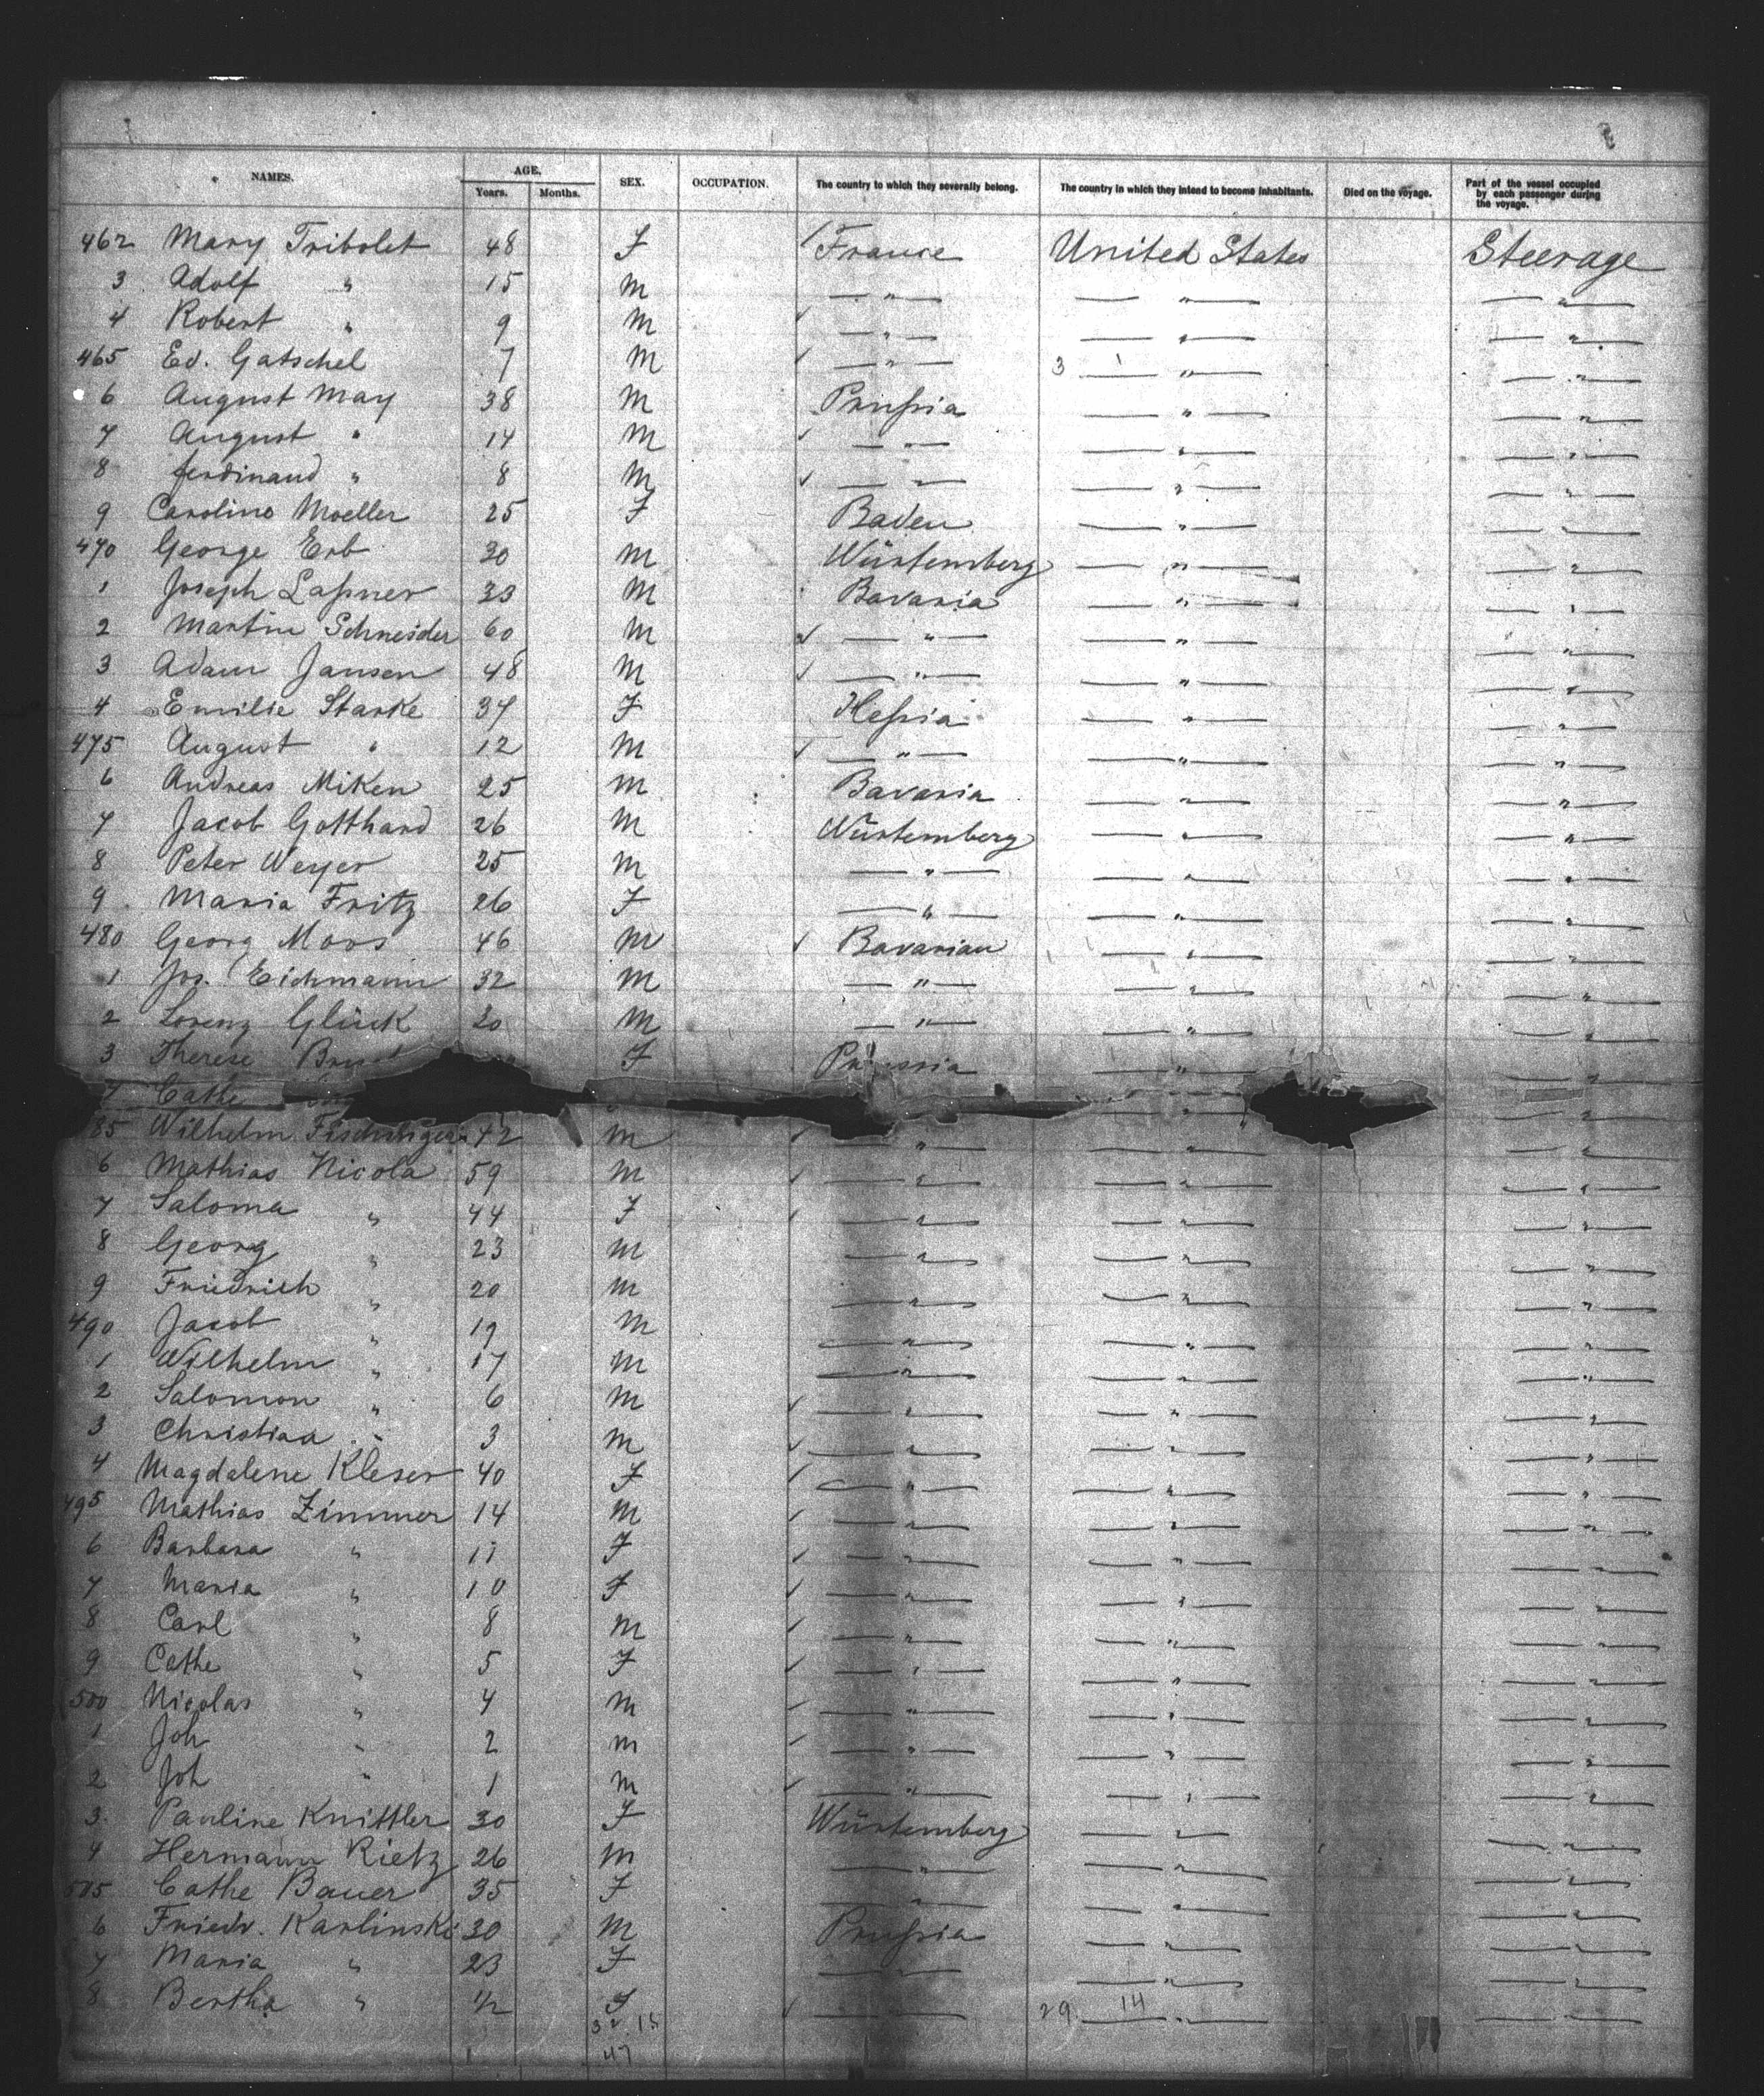 NAMES. AGE. Years. Months. SEX. OCCUPATION. The country to which they severally belong. The country in which they intend to become inhabitants. Died on the voyage. Part of the vessel occupied by each passenger during the voyage.
462 Mary Tribolet 48 F France United States Steerage
3 Adolf " 15 M " " "
4 Robert " 9 M " " "
465 Ed. Gatschel 7 M " 3 1 " "
6 August May 38 M Prussia " "
7 August " 14 M " " "
8 Ferdinand " 8 M " " "
9 Caroline Moeller 25 F Baden " "
470 George Erb 30 M Würtemberg " "
1 Joseph Lassner 33 M Bavaria " "
2 Martin Schneider 60 M " " "
3 Adam Jansen 48 M " " "
4 Emilie Starke 34 F Hessia " "
475 August " 12 M " " "
6 Andreas Miken 25 M Bavaria " "
7 Jacob Gotthard 26 M Würtemberg " "
8 Peter Weyer 25 M " " "
9 Maria Fritz 26 F " " "
480 Georg Moos 46 M Bavarian " "
1 Jos. Eichmann 32 M " " "
2 Lorenz Glück 30 M " " "
3 Therese F Prussia " "
4 Cathe " "
85 Wilhelm 42 M " " "
6 Mathias Nicola 59 M " " "
7 Saloma " 44 F " " "
8 Georg " 23 M " " "
9 Friedrich " 20 M " " "
490 Jacob " 19 M " " "
1 Wilhelm " 17 M " " "
2 Salomon " 6 M " " "
3 Christian " 3 M " " "
4 Magdalene Kleser 40 F " " "
495 Mathias Zimmer 14 M " " "
6 Barbara " 11 F " " "
7 Maria " 10 F " " "
8 Carl " 8 M " " "
9 Cathe " 5 F " " "
500 Nicolas " 4 M " " "
1 Joh " 2 M " " "
2 Joh " 1 M " " "
3 Pauline Knittler 30 F Würtemberg " "
4 Hermann Rietz 26 M " " "
505 Cathe Bauer 35 F " " "
6 Friedr. Karlinski 30 M Prussia " "
7 Maria " 23 F " "
8 Bertha " 1/2 F 29 14 " "
32 15
47